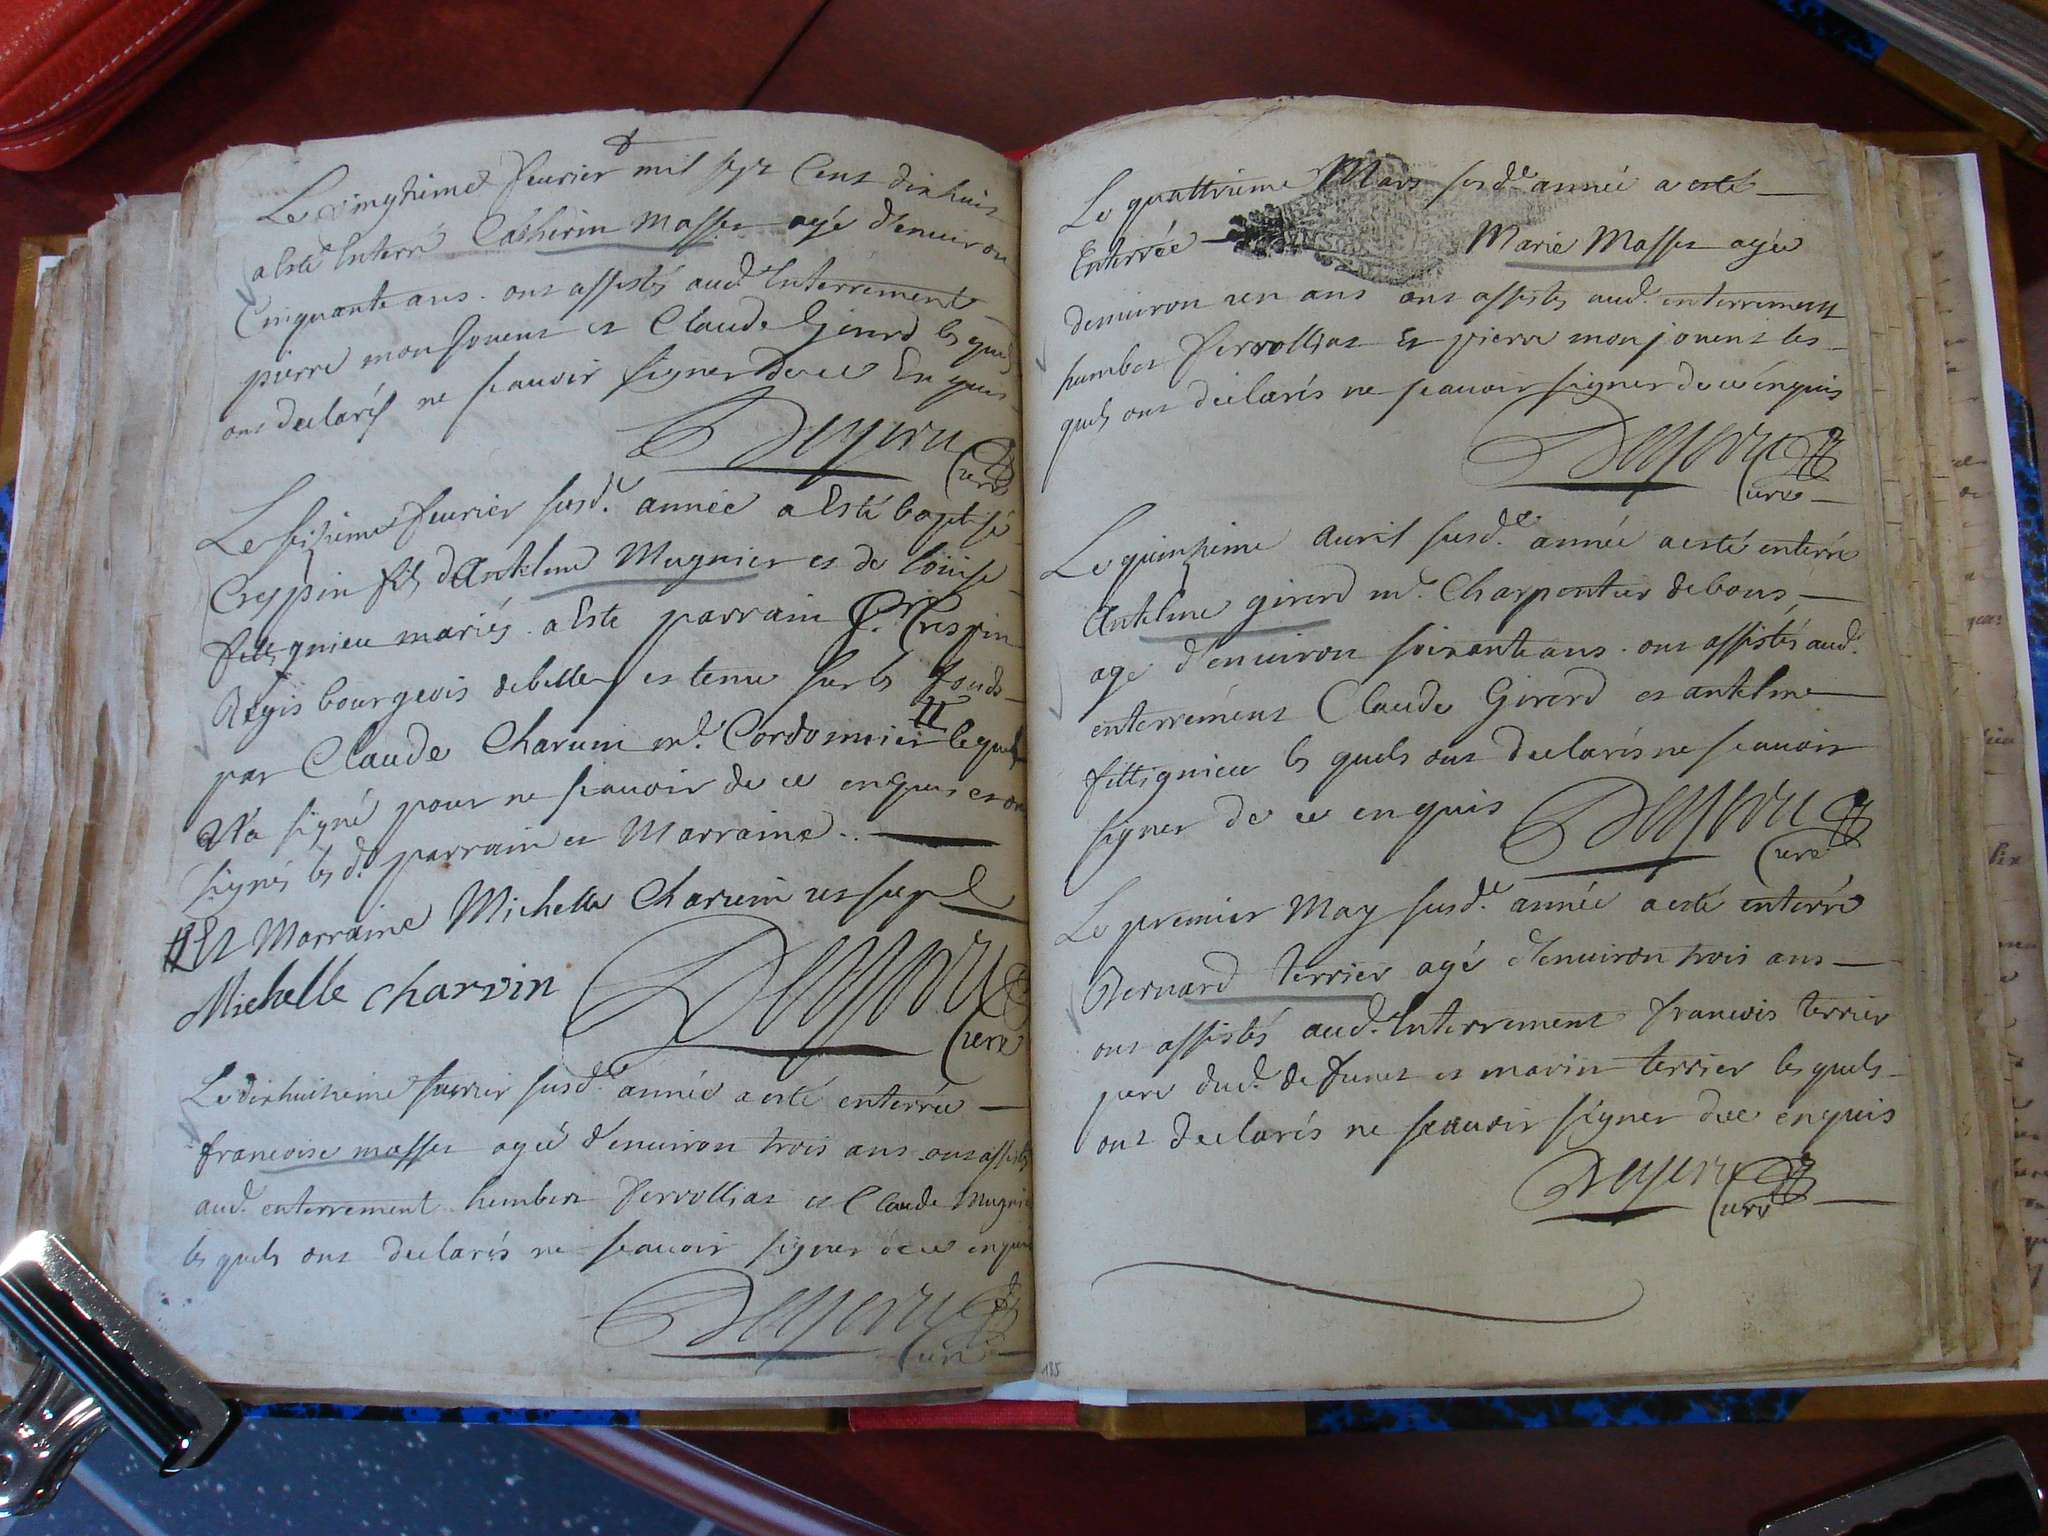 Le vingtieme feurier mil sept Cent dixhuit
a Esté Enterré Catherin Masset agé d'enuiron
Cinquante ans. ont assistés aud. Enterrement
pierre monjouent et Claude Girerd les quels
ont declarés ne scauoir signer de ce En quis
Deyseru
Curé
Le seizieme feurier susd.e année a Esté baptisé
Creppin fils d'Anthelme Mugnier et de loüise
fillignieu mariés. a Este parrain Crespin
Regis bourgeois debelley et tenu sur les fonds
par Claude Charuin m.e Cordonnier # lequel
N'a signé pour ne scauoir de ce enquis et ont
signés les d. parrain et Marraine.
# Et Marraine Michelle Charuin
Michelle charvin
Deyseru
Curé
Le dixhuitieme feurier susd.e année a esté enterrée
francoise masset agée d'enuiron trois ans ont assistés
aud. enterrement humbert Ferrolliat et Claude Mugnier
les quels ont declarés ne scauoir signer de ce enquis
Deyseru
Curé
Le quattrieme Mars susd.e année a esté
Enterrée Marie Masset agée
denuiron un ans ont assistés aud. enterrement
humbert Ferrolliat Et pierre monjouent les
quels ont declarés ne scauoir signer de ce enquis
Deyseru
Curé
Le quinzieme Auril susd.e année a esté enterré
Anthelme girerd m.e Charpentier debons
agé d'enuiron soixante ans. ont assistés aud.
enterrement Claude Girerd et anthelme
fillignieu les quels ont declarés ne scauoir
signer de ce enquis Deyseru
Curé
Le premier May susd.e année a esté enterré
Bernard terrier agé d'enuiron trois ans
ont assistés aud. Enterrement francois terrier
pere dud. defunct et marin terrier les quels
ont declarés ne scauoir signer de ce enquis
Deyseru
Curé
185